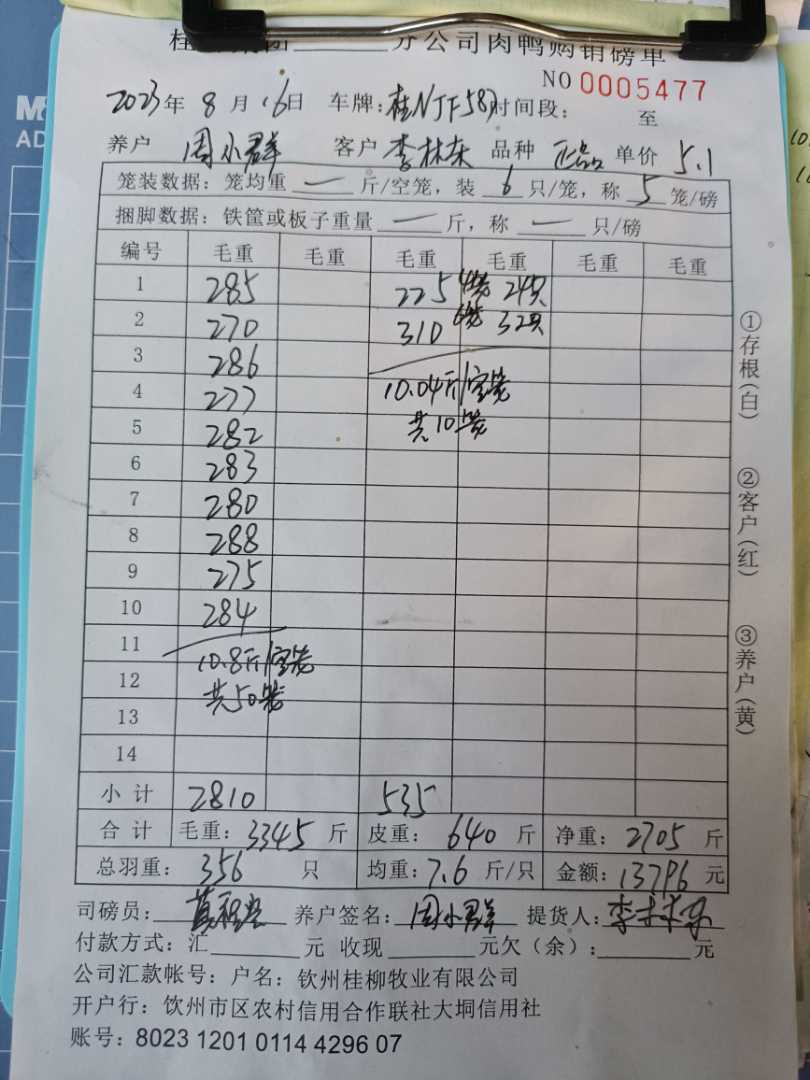 桂 集团______分公司肉鸭购销磅单
NO 0005477
2023年 8 月 16日 车牌：桂NJF587 时间段： 至
养户 周小群 客户 李林东 品种 正品 单价 5.1
笼装数据：笼均重 一 斤/空笼，装 6 只/笼，称 5 笼/磅
捆脚数据：铁筐或板子重量 一 斤，称 一 只/磅
编号 毛重 毛重 毛重 毛重 毛重 毛重
1 285 225 4笼 24只
2 270 310 6笼 32只
3 286
4 277 10.04斤/空笼
5 282 共10笼
6 283
7 280
8 288
9 275
10 284
11 10.8斤/空笼
12 共50笼
13
14
小计 2810 535
合计 毛重：3345 斤 皮重：640 斤 净重：2705 斤
总羽重：356 只 均重：7.6 斤/只 金额：13796 元
司磅员： 养户签名：周小群 提货人：李林东
付款方式：汇______元 收现______元欠（余）：______元
公司汇款帐号：户名：钦州桂柳牧业有限公司
开户行：饮州市区农村信用合作联社大垌信用社
账号：8023 1201 0114 4296 07
①存根(白)
②客户(红)
③养户(黄)
M
AD